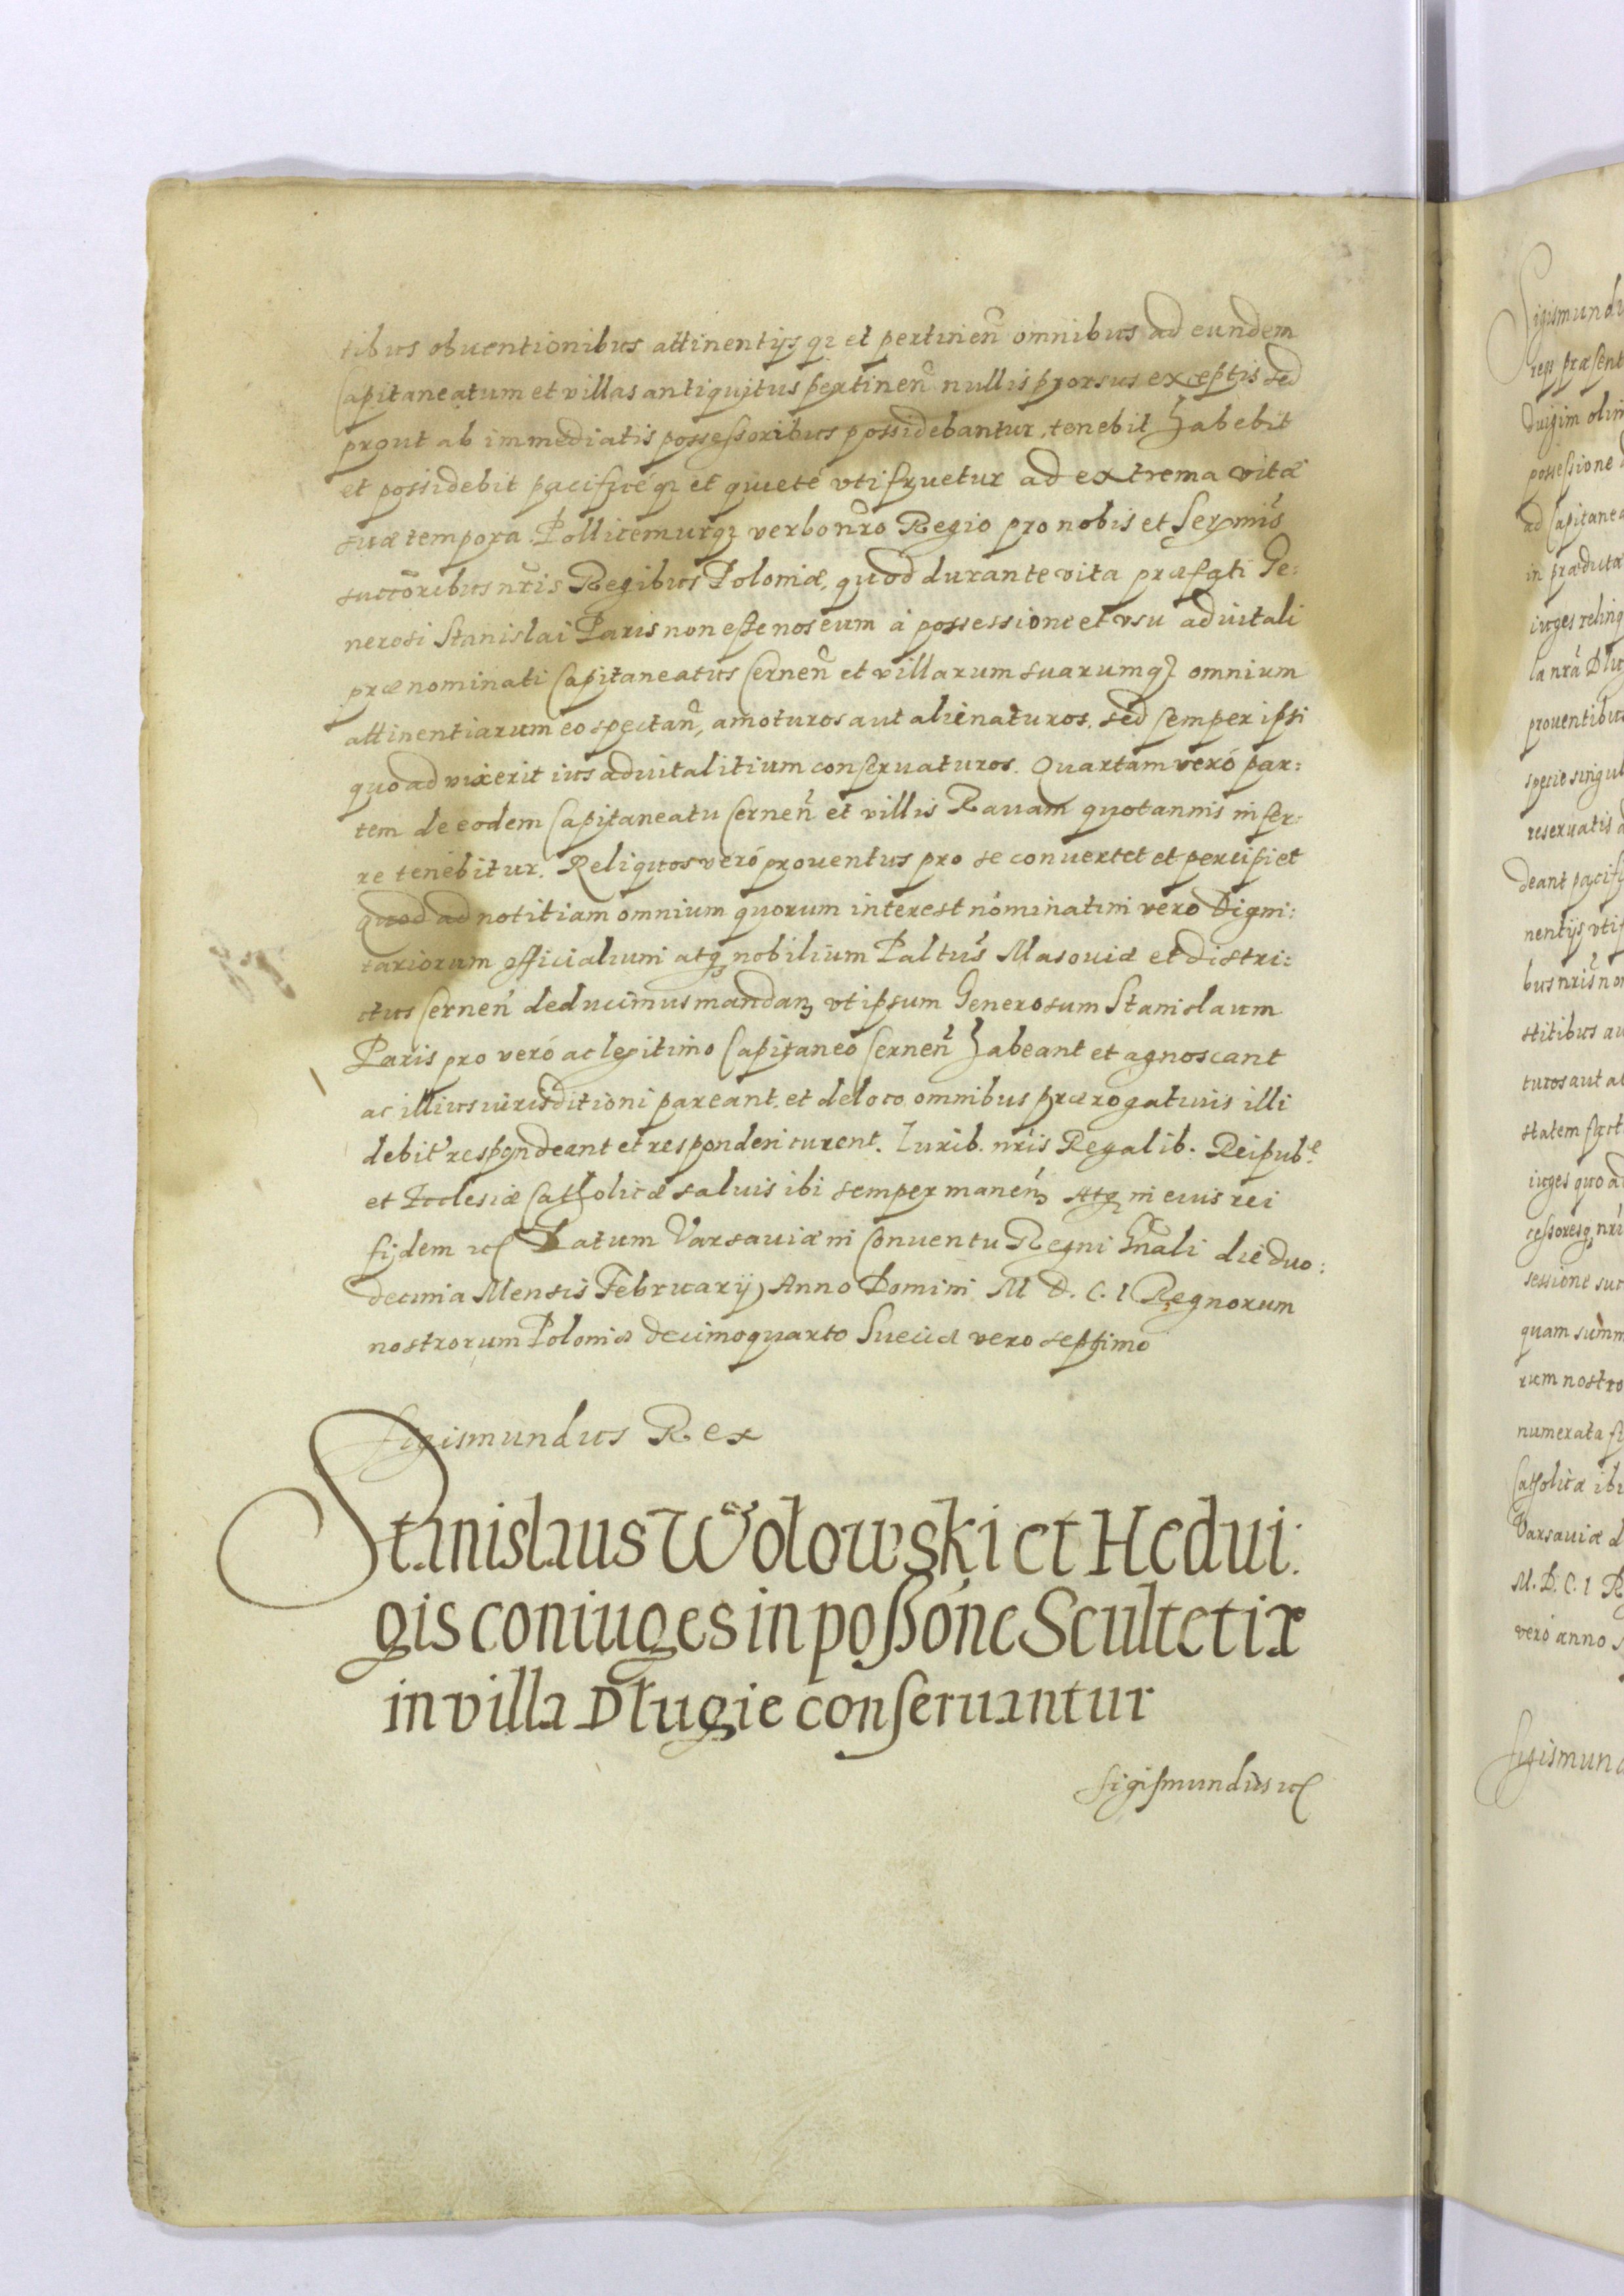 tibus obuentionibus attinentijsq₃ et pertinen̄ omnibus ad eundem
Capitaneatum et villas antiquitus pertinen̄ nullis prorsus exceptis sed
prout ab immediatis possessoribus possidebantur, tenebit habebit
et possidebit pacificéq₃ et quieté vtifruetur ad extrema vitæ
suæ tempora. Pollicemurq₃ verbo nr̄o Regio pro nobis et Serm̄is
succōribus nr̄is Regibus Poloniæ, quod durante vita præfati Ge:
nerosi Stanislai Paris non esse nos eum á possessione et vsu aduitali
prænominati Capitaneatus Cernen̄ et villarum suarumq₃ omnium
attinentiarum eo spectan̄, amoturos aut alienaturos. sed semper ipsi
quoad vixerit ius aduitalitium conseruaturos. Quartam veró par:
tem de eodem Capitaneatu Cernen̄ et villis Rauam quotannis infer:
re tenebitur. Reliquos veró prouentus pro se conuertet et percipiet
quod ad notitiam omnium quorum interest nominatim vero Digni:
tariorum officialium atq₃ nobilium Paltus̄ Masouiæ et distri:
ctus Cernen̄ deducimus mandan₃ vt ipsum Generosum Stanislaum
Paris pro veró ac legitimo Capitaneo Cernen̄ habeant et agnoscant
ac illius iurisditioni pareant. et de loco omnibus prærogatiuis illi
debit̄ respondeant et responderi curent. Iurib. nr̄is Regalib. Reipub.ᵉ
et Ecclesiæ Catholicæ saluis ibi semper manen₃ Atq₃ in cuius rei
fidem etc Datum Varsauiæ in Conuentu Regni Gn̄ali die duo:
decima Mensis Februarij Anno Domini M D. C. I Regnorum
nostrorum Poloniæ decimoquarto Sueciæ vero septimo
Sigismundus Rex
Stanislaus Wolowski et Hedui:
gis coniuges in poßōne Scultetiæ
in villa Dlugie conseruantur
Sigismundus etc
Sigismundu
reps præsent
duigim olim
possessione
ad Capitanea
iuges relinq
la nr̄a Dlug
prouentibus
specie singul
reseruatis
deant pacif
nentijs vtif
bus nr̄is no
stitibus au
turos aut al
statem fact
iuges quoad
cessoresq₃ nr̄i
sessione suc
quam summ
rum nostro
numerata
Catholicæ ibi
Varsauiæ d
M. D. C. I R
veró anno
Sigismun